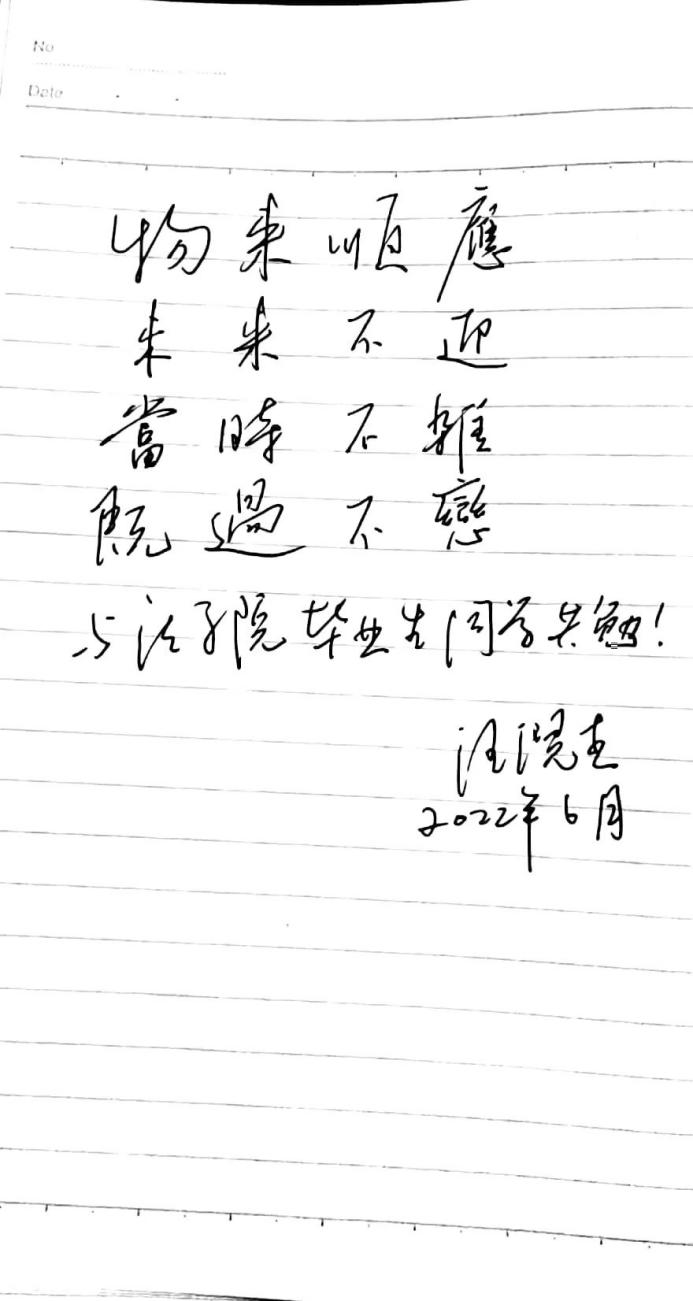 No
Date
物来順應
未来不迎
當時不雜
既過不戀
与法学院毕业生同学共勉!
汪
2022年6月